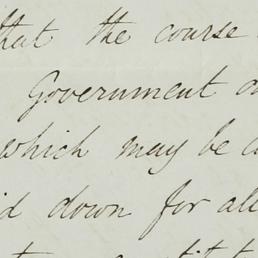 that the course
Government
which may be
down for all